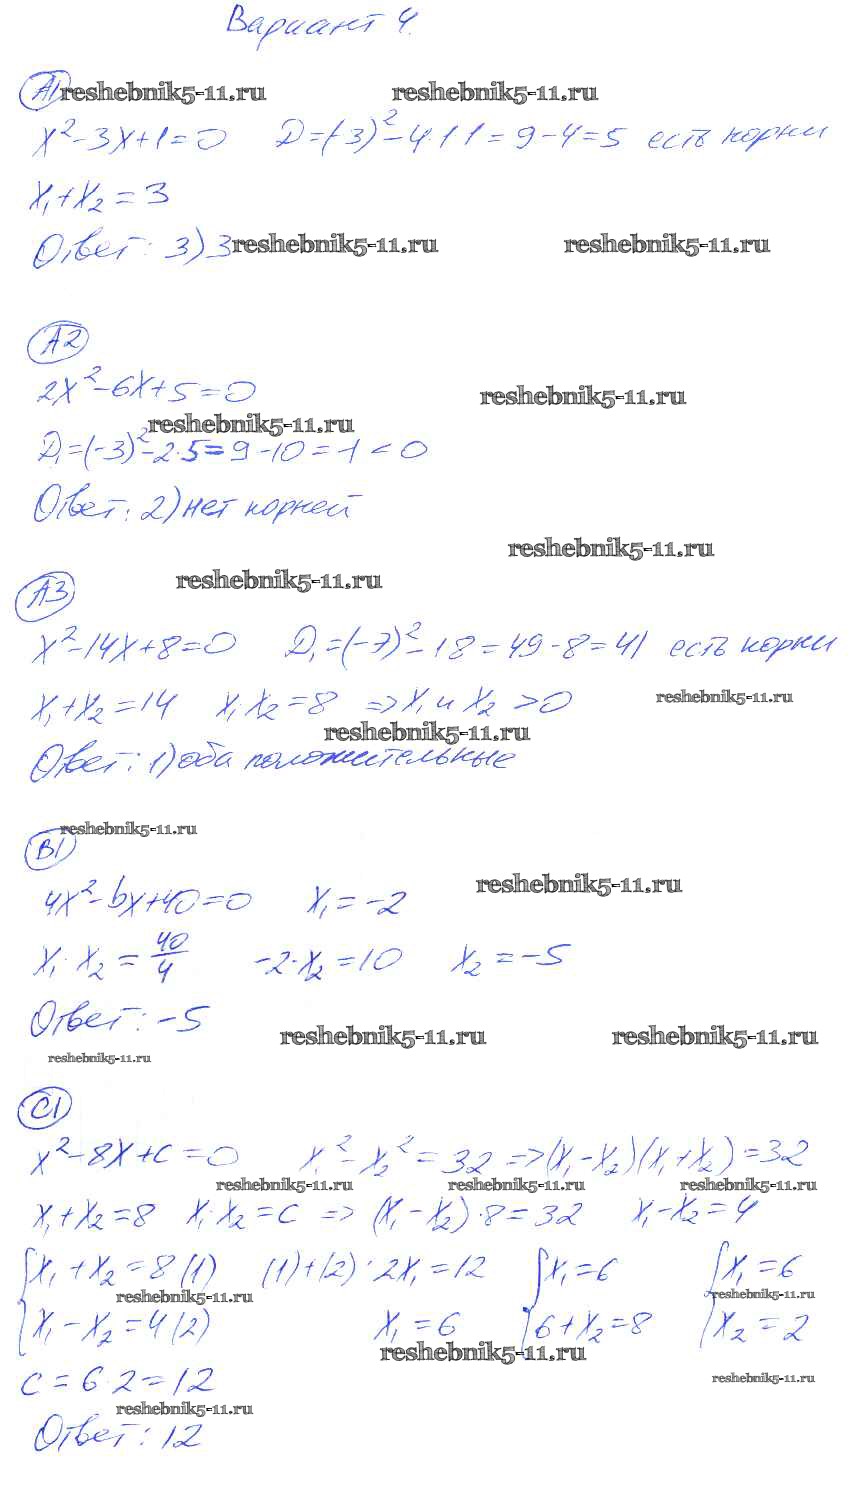 Вариант 4.
А1 reshebnik5-11.ru reshebnik5-11.ru
x²-3x+1=0 D=(-3)²-4·1·1=9-4=5 есть корни
x₁+x₂=3
Ответ: 3) 3 reshebnik5-11.ru reshebnik5-11.ru
А2
2x²-6x+5=0 reshebnik5-11.ru
reshebnik5-11.ru
D₁=(-3)²-2·5=9-10=-1<0
Ответ: 2) нет корней
reshebnik5-11.ru
А3 reshebnik5-11.ru
x²-14x+8=0 D₁=(-7)²-1·8=49-8=41 есть корни
x₁+x₂=14 x₁·x₂=8 => x₁ и x₂ >0 reshebnik5-11.ru
reshebnik5-11.ru
Ответ: 1) оба положительные
reshebnik5-11.ru
В1
4x²-bx+40=0 x₁=-2 reshebnik5-11.ru
x₁·x₂=40/4 -2·x₂=10 x₂=-5
Ответ: -5
reshebnik5-11.ru reshebnik5-11.ru
reshebnik5-11.ru
С1
x²-8x+c=0 x₁²-x₂²=32 => (x₁-x₂)(x₁+x₂)=32
reshebnik5-11.ru reshebnik5-11.ru reshebnik5-11.ru
x₁+x₂=8 x₁·x₂=c => (x₁-x₂)·8=32 x₁-x₂=4
{x₁+x₂=8 (1) (1)+(2): 2x₁=12 {x₁=6 {x₁=6
reshebnik5-11.ru reshebnik5-11.ru
x₁-x₂=4 (2) x₁=6 6+x₂=8 x₂=2
reshebnik5-11.ru
c=6·2=12 reshebnik5-11.ru
reshebnik5-11.ru
Ответ: 12